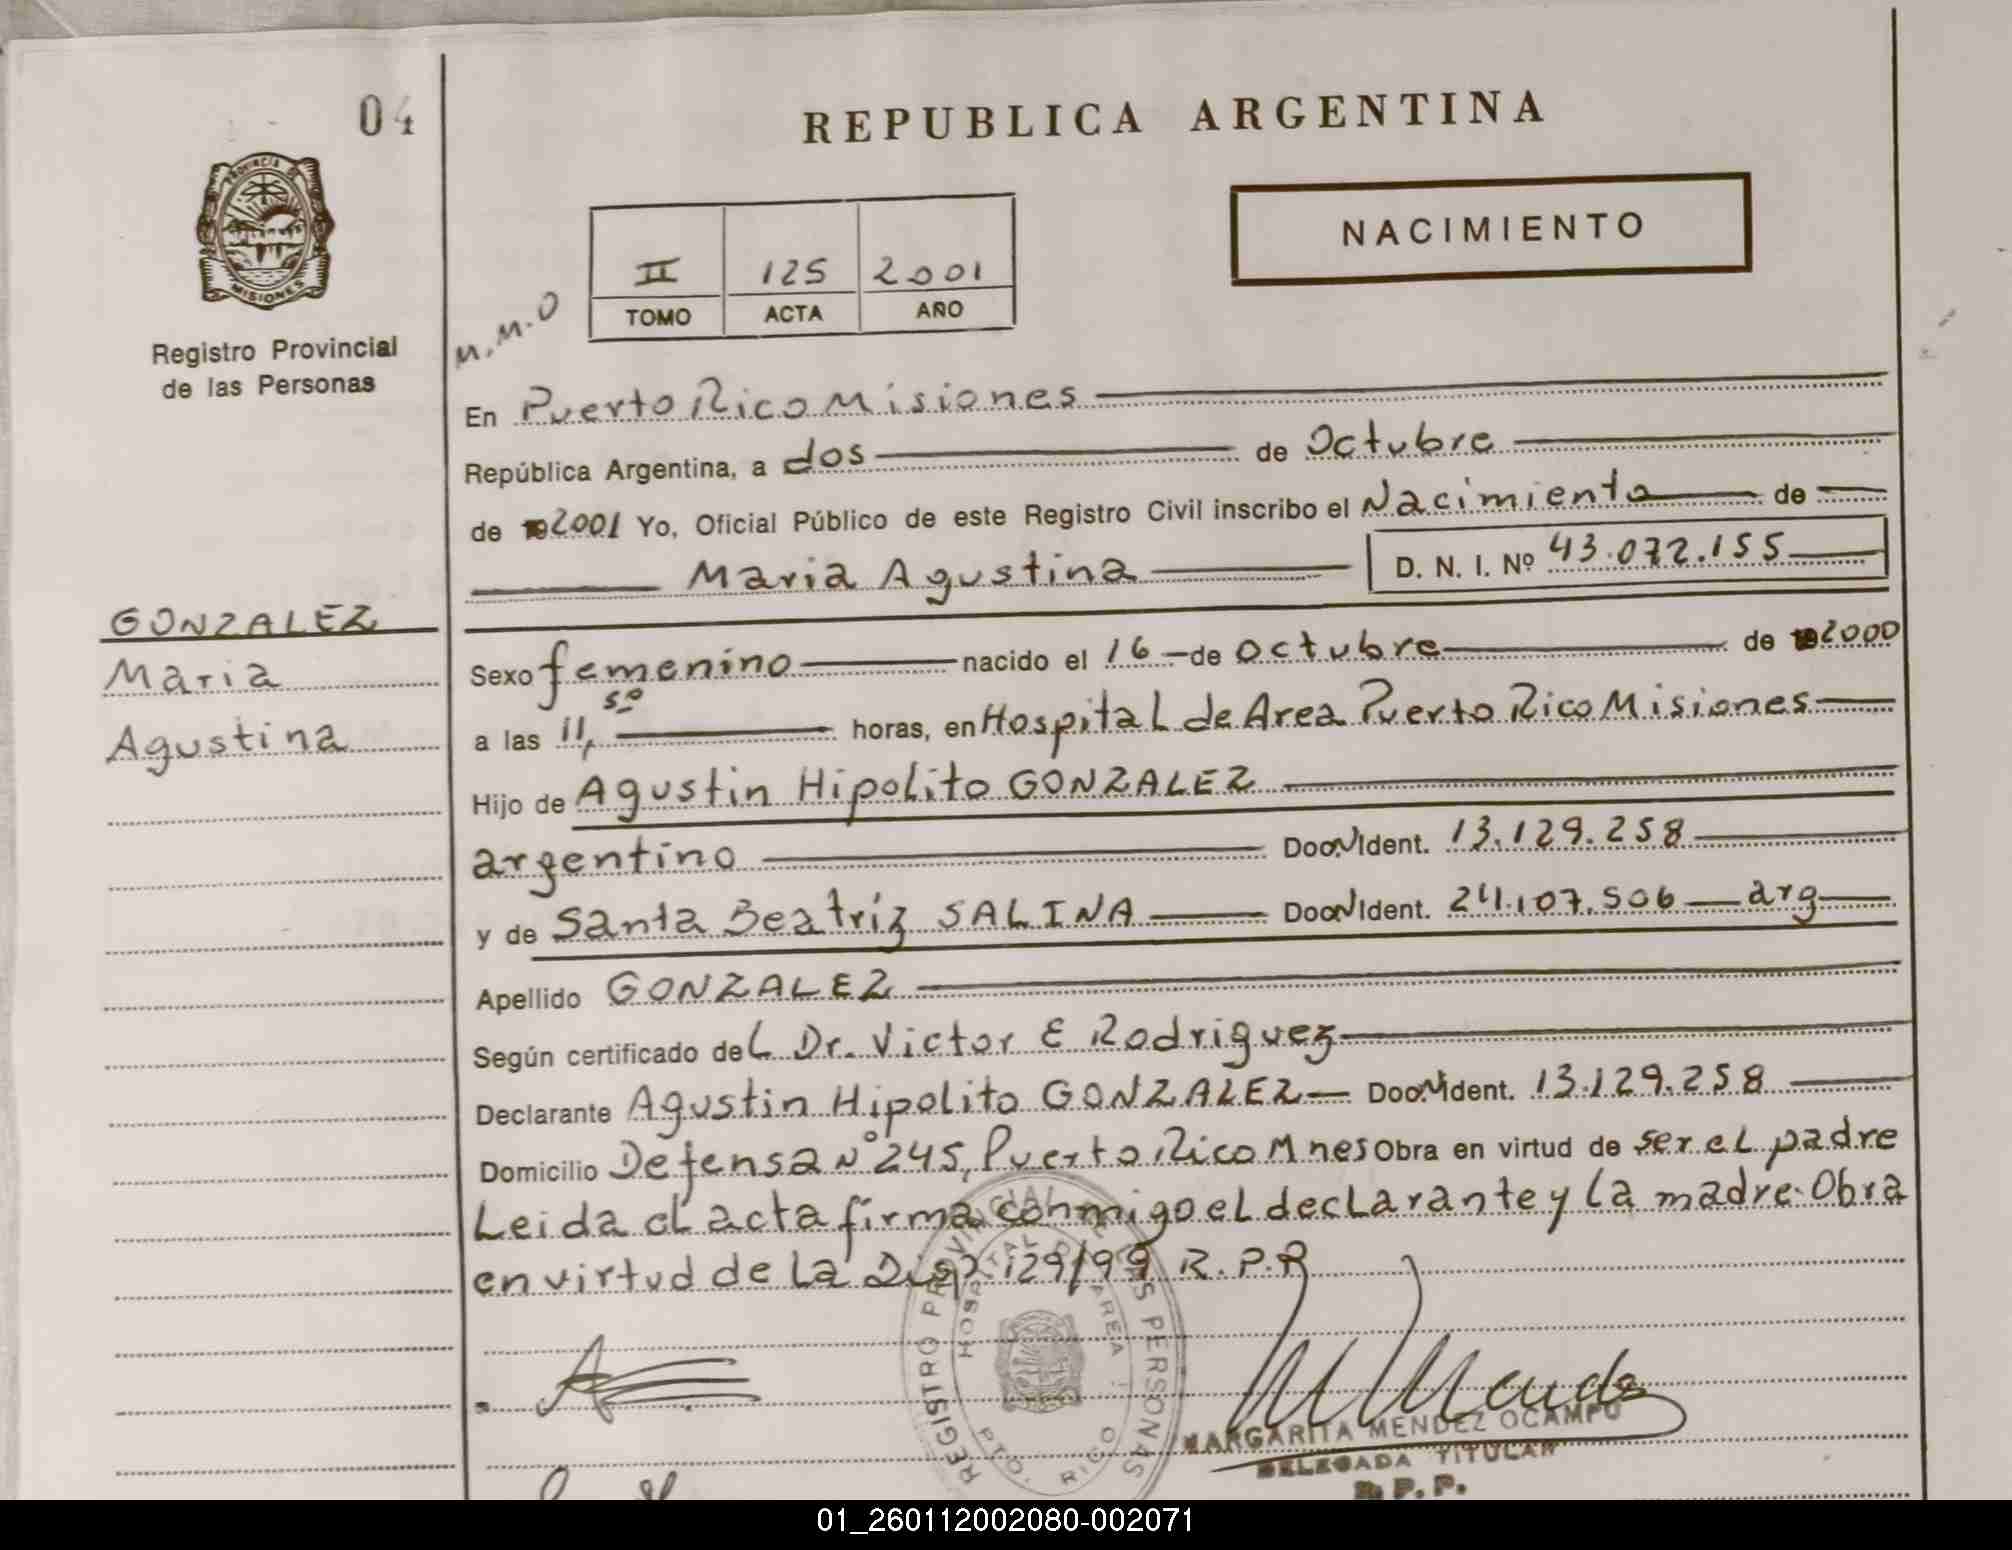 04
REPUBLICA ARGENTINA
PROVINCIA DE
MISIONES
Registro Provincial
de las Personas
NACIMIENTO
II 125 2001
TOMO ACTA AÑO
M.M.O
En Puerto Rico Misiones
República Argentina, a dos de Octubre
de 2001 Yo, Oficial Público de este Registro Civil inscribo el Nacimiento de
Maria Agustina D. N. I. Nº 43.072.155
GONZALEZ
Maria
Agustina
Sexo femenino nacido el 16 de octubre de 2000
a las 11,50 horas, en Hospital de Area Puerto Rico Misiones
Hijo de Agustin Hipolito GONZALEZ
argentino Doc. Ident. 13.129.258
y de Santa Beatriz SALINA Doc. Ident. 24.107.506 arg
Apellido GONZALEZ
Según certificado del Dr. Victor E Rodriguez
Declarante Agustin Hipolito GONZALEZ Doc. Ident. 13.129.258
Domicilio Defensa Nº 245, Puerto Rico Mnes Obra en virtud de ser el padre
Leida el acta firma conmigo el declarante y la madre. Obra
en virtud de la 129/99 R.P.P
REGISTRO PROVINCIAL DE LAS PERSONAS
HOSPITAL DE AREA
PTO. RICO
MARGARITA MENDEZ OCAMPO
DELEGADA TITULAR
R. P. P.
01_260112002080-002071